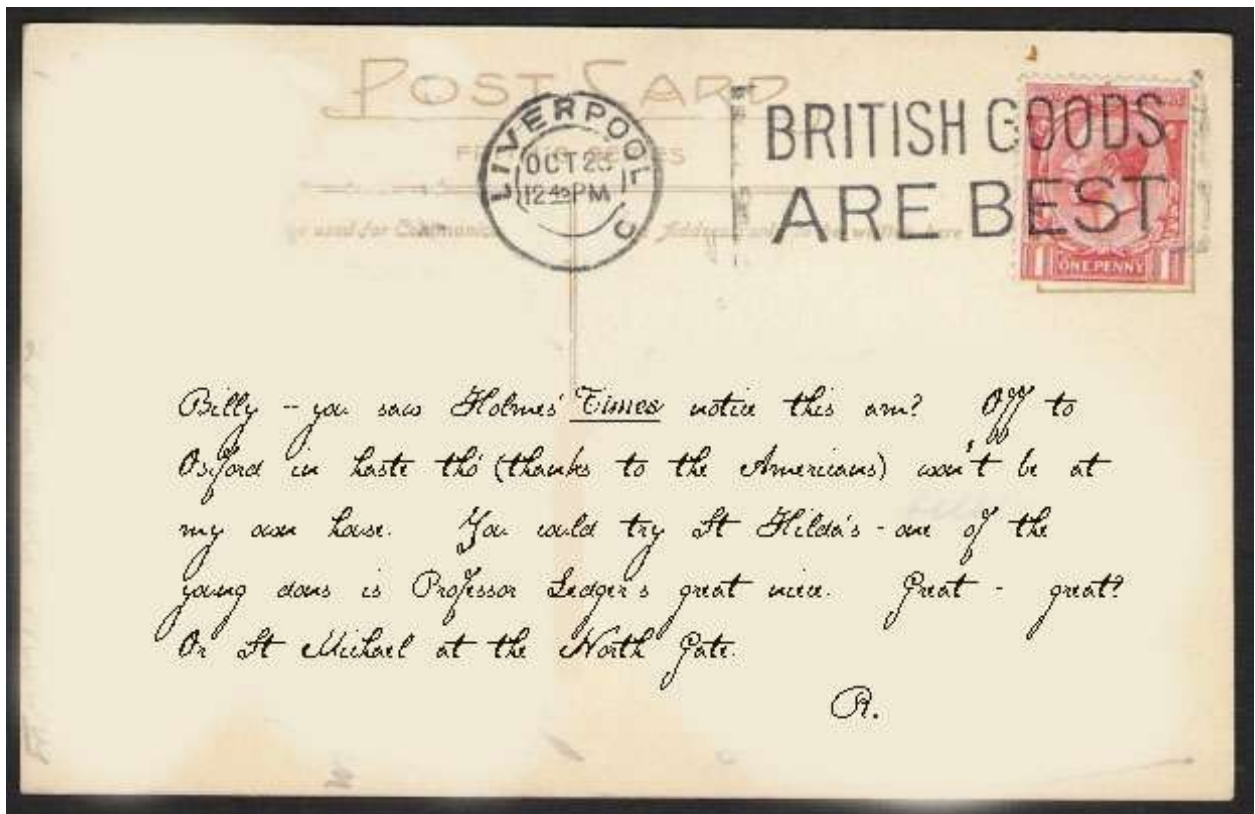 POST CARD
LIVERPOOL
OCT 23
12 45 PM
BRITISH GOODS
ARE BEST
ONE PENNY
used for Address only to be written here
Billy -- you saw Holmes' Times notice this am? Off to
Oxford in haste tho' (thanks to the Americans) won't be at
my own house. You could try St Hilda's - one of the
young dons is Professor Ledger's great niece. Great - great?
Or St Michael at the North Gate.
R.